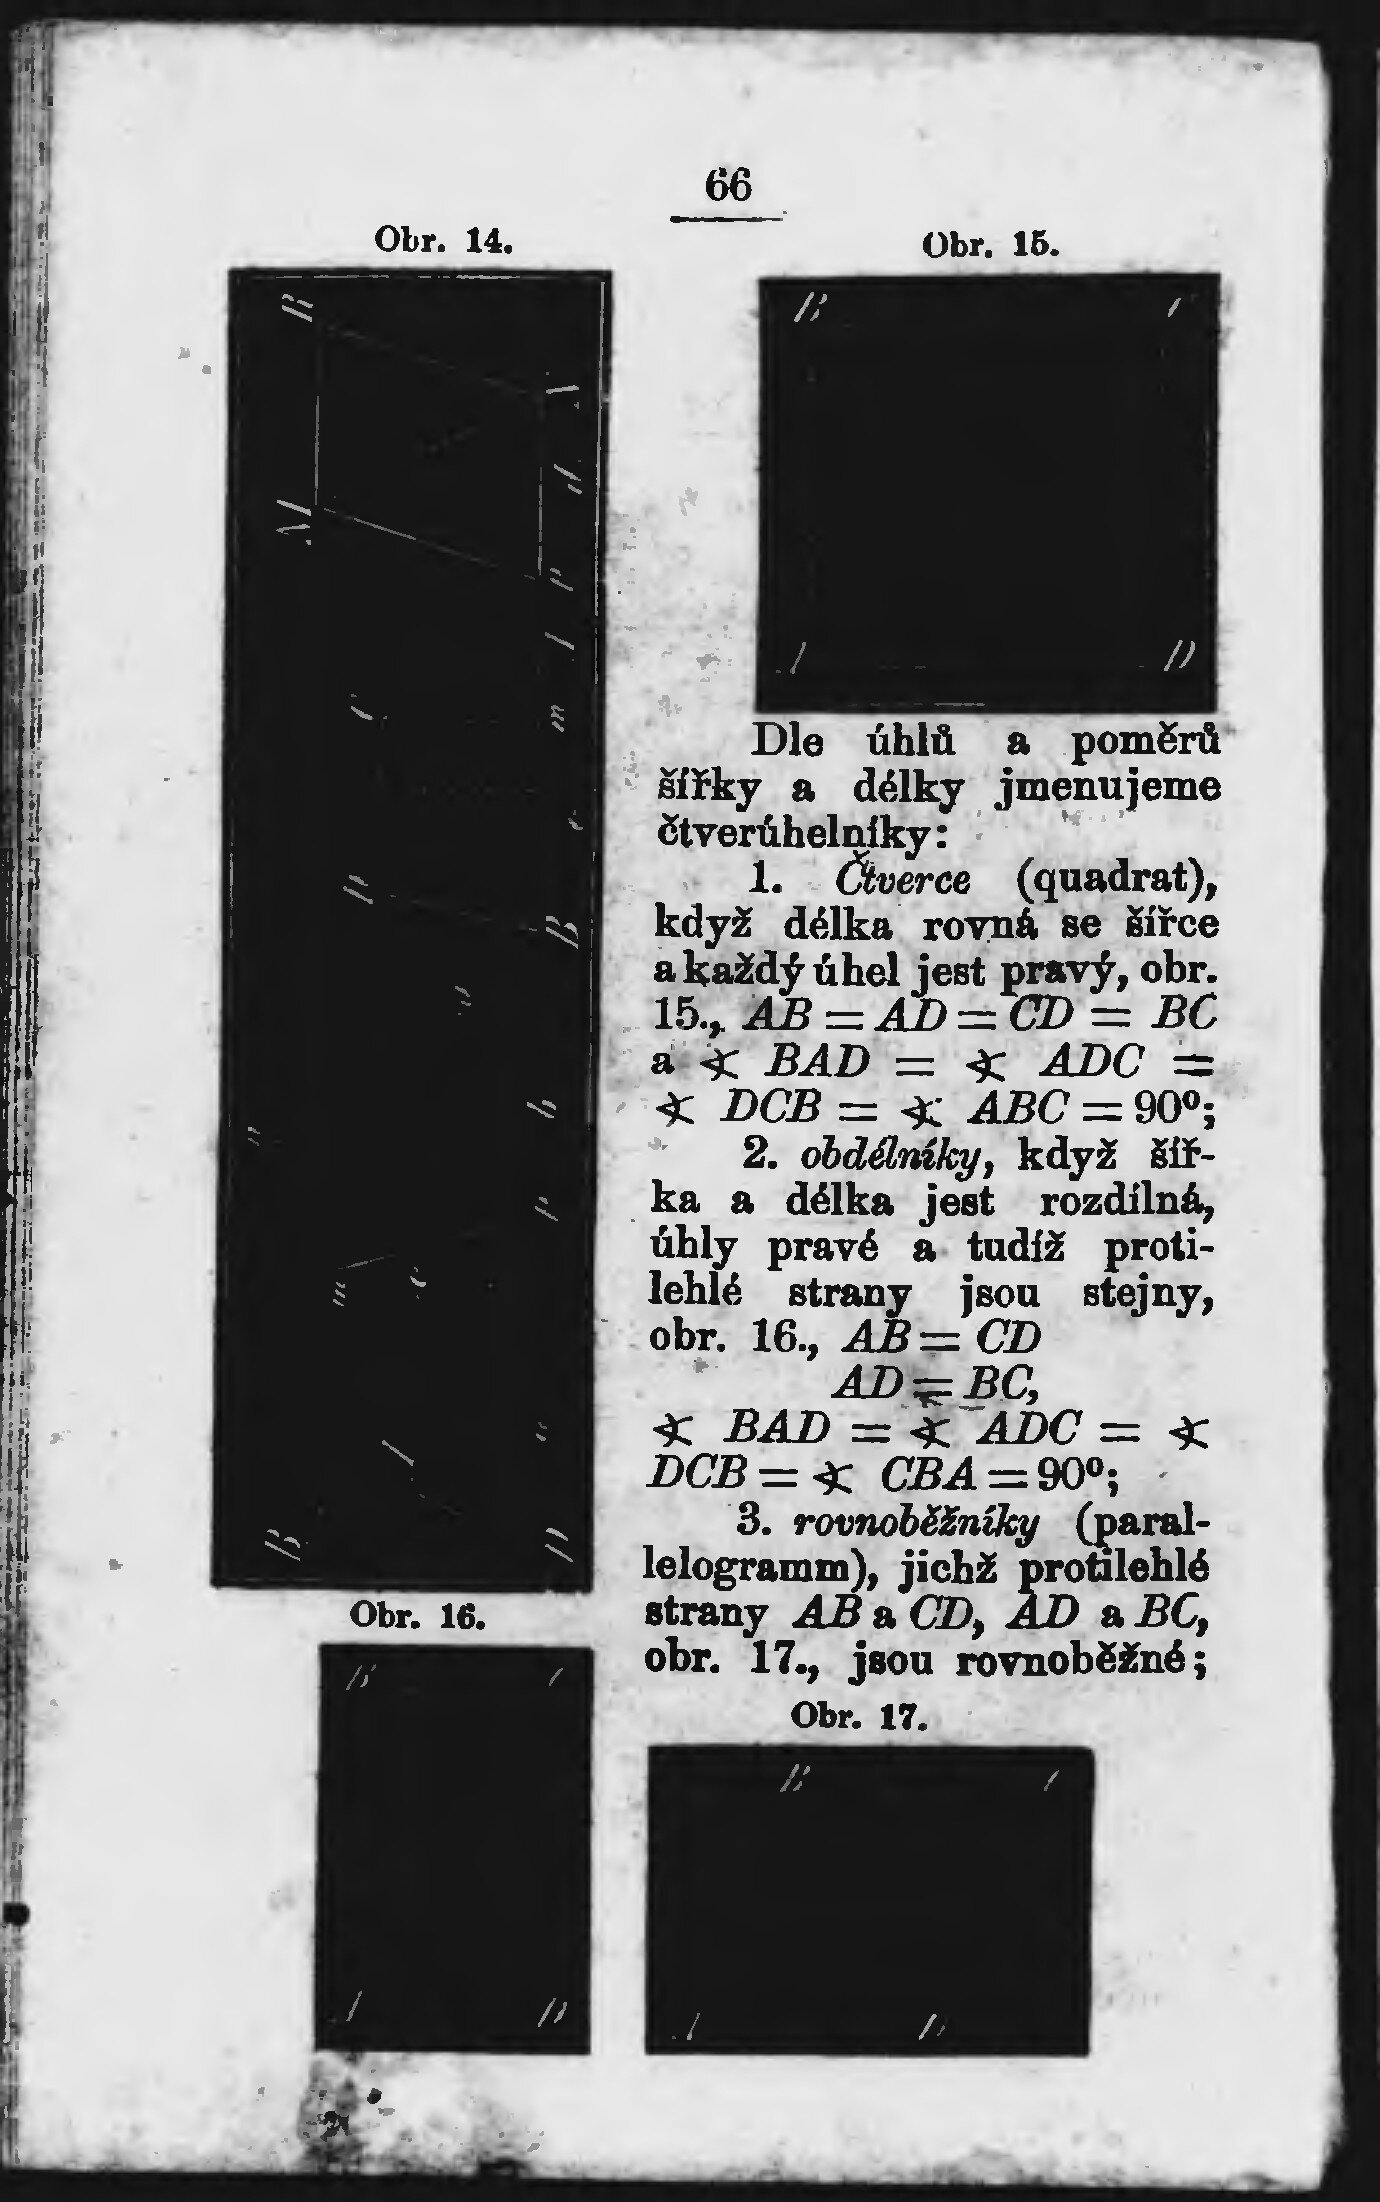 66
Obr. 14.
Obr. 15.
B
C
A
D
Dle úhlů a poměrů
šířky a délky jmenujeme
čtverúhelníky:
1. Čtverce (quadrat),
když délka rovná se šířce
a každý úhel jest pravý, obr.
15., AB = AD = CD = BC
a ∢ BAD = ∢ ADC =
∢ DCB = ∢ ABC = 90⁰;
2. obdélníky, když šíř-
ka a délka jest rozdílná,
úhly pravé a tudíž proti-
lehlé strany jsou stejny,
obr. 16., AB = CD
AD = BC,
∢ BAD = ∢ ADC = ∢
DCB = ∢ CBA = 90⁰;
3. rovnoběžníky (paral-
lelogramm), jichž protilehlé
strany AB a CD, AD a BC,
obr. 17., jsou rovnoběžné;
Obr. 16.
B
D
Obr. 17.
B
D